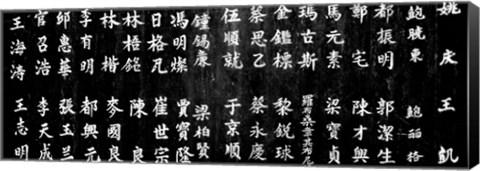 姚 王 凱
鮑曉東 鮑
都振明 郭潔生
鄭 宅 陳才興
馬元素 梁寶貞
瑪古斯
金鑑標 黎銳球
蔡思乙 蔡永慶
伍順就 于京順
鍾錫康 梁柏賢
馮明燦 賈寶隆
日格瓦 崔世宗
林梧銘 陳 良
林 楷 麥國良
李有明 都興元
邱惠華 張玉兰
官召浩 李天成
王海涛 王志明